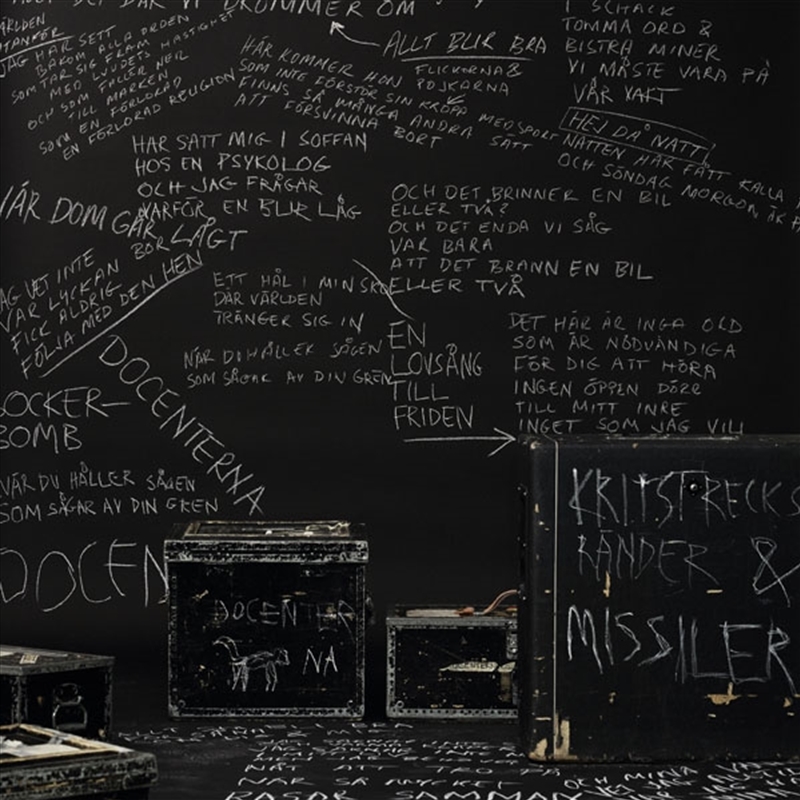 DRÖMMER OM
ALLT BLIR BRA
FLICKORNA &
POJKARNA
I SCHACK
TOMMA ORD &
BISTRA MINER
VI MÅSTE VARA PÅ
VÅR VAKT
HEJ DÅ NATT!
NATTEN HAR FÅTT KALLA
OCH SÖNDAG MORGON ÄR
VÄRLDEN
UTANFÖR
JAG HAR SETT
BAKOM ALLA ORDEN
SOM TAR SIG FRAM
MED LJUDETS HASTIGHET
OCH SOM FALLER NER
TILL MARKEN
SOM EN FÖRLORAD
EN FÖRLORAD RELIGION
HÄR KOMMER HON
SOM INTE FÖRSTÖR SIN KROPP MED SPORT
FINNS SÅ MÅNGA ANDRA SÄTT
ATT FÖRSVINNA BORT
HAR SATT MIG I SOFFAN
HOS EN PSYKOLOG
OCH JAG FRÅGAR
VARFÖR EN BLIR LÅG
NÄR DOM GÅR
BOR LÅGT
OCH DET BRINNER EN BIL
ELLER TVÅ?
OCH DET ENDA VI SÅG
VAR BARA
ATT DET BRANN EN BIL
ELLER TVÅ
JAG VET INTE
VAR LYCKAN
FICK ALDRIG
FÖLJA MED DEN HEM
ETT HÅL I MIN SKO
DÄR VÄRLDEN
TRÄNGER SIG IN
NÄR DU HÅLLER SÅGEN
SOM SÅGAR AV DIN GREN
EN
LOVSÅNG
TILL
FRIDEN
DET HÄR ÄR INGA ORD
SOM ÄR NÖDVÄNDIGA
FÖR DIG ATT HÖRA
INGEN ÖPPEN DÖRR
TILL MITT INRE
INGET SOM JAG VILL
DOCENTERNA
SOCKER-
BOMB
NÄR DU HÅLLER SÅGEN
SOM SÅGAR AV DIN GREN
DOCEN
DOCENTER
NA
KRITSTRECKS
RÄNDER &
MISSILER
ATT TRO PÅ
NÄR SÅ MYCKET
OCH MINA
RASAR SAMMAN